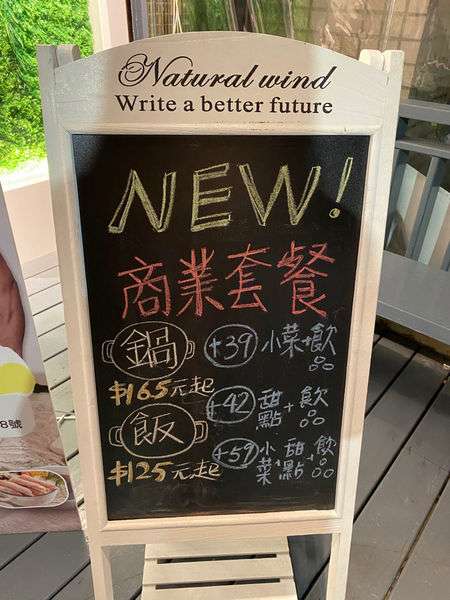 Natural wind
Write a better future
NEW!
商業套餐
鍋
$165元起
飯
$125元起
+39 小菜+飲
+42 甜點+飲
+59 小菜+甜點+飲
8號